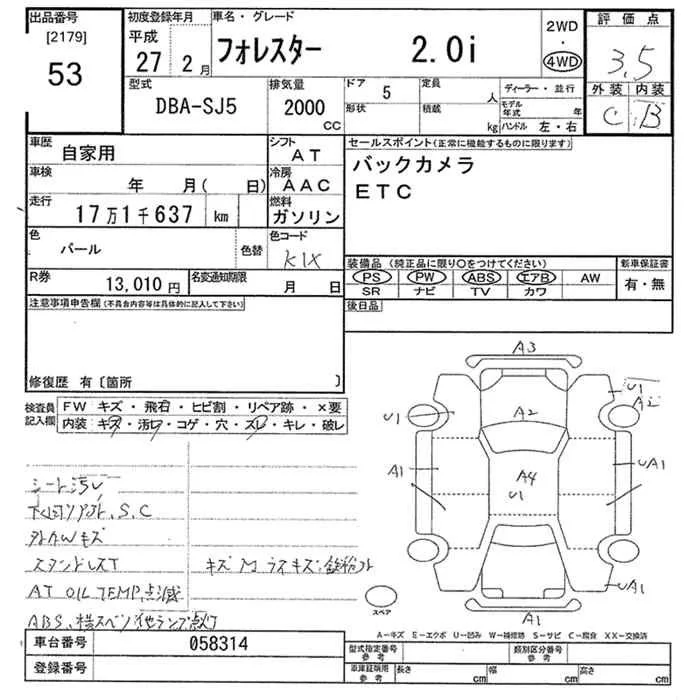 出品番号
[2179]
53
初度登録年月
平成
27 2月
車名・グレード
フォレスター 2.0i
2WD
・
4WD
評価点
3.5
外装 内装
C B
型式
DBA-SJ5
排気量
2000
CC
ドア 5
形状
定員 人
積載 kg
ディーラー・並行
モデル年式 年
ハンドル 左・右
車歴
自家用
シフト
AT
車検
年 月( 日)
冷房
AAC
走行
17万1千637 km
燃料
ガソリン
色
パール
色替
色コード
K1X
R券
13,010円
名変通知期限
月 日
セールスポイント(正常に機能するものに限ります)
バックカメラ
ETC
装備品 (純正品に限り○をつけてください)
PS PW ABS エアB AW
SR ナビ TV カワ
新車保証書
有・無
後日品
注意事項申告欄(不具合内容等は具体的に記入して下さい)
修復歴 有〔箇所 〕
検査員記入欄
FW キズ・飛石・ヒビ割・リペア跡・×要
内装:キズ・汚レ・コゲ・穴・スレ・キレ・破レ
シート汚レ
下回りサビ、S.C
外AWキズ
スタッドレスT
AT OIL TEMP.点滅
ABS、横スベリ他ランプ点灯
A3
U1
A2
U1
A2
A1
UA1
A4
U1
UA1
A1
スペア
A-キズ E-エクボ U-凹み W-補修跡 S-サビ C-腐食 XX-交換済
車台番号 058314
登録番号
型式指定番号
参考
類別区分番号
参考
車庫証明用
参考
長さ cm
幅 cm
高さ cm